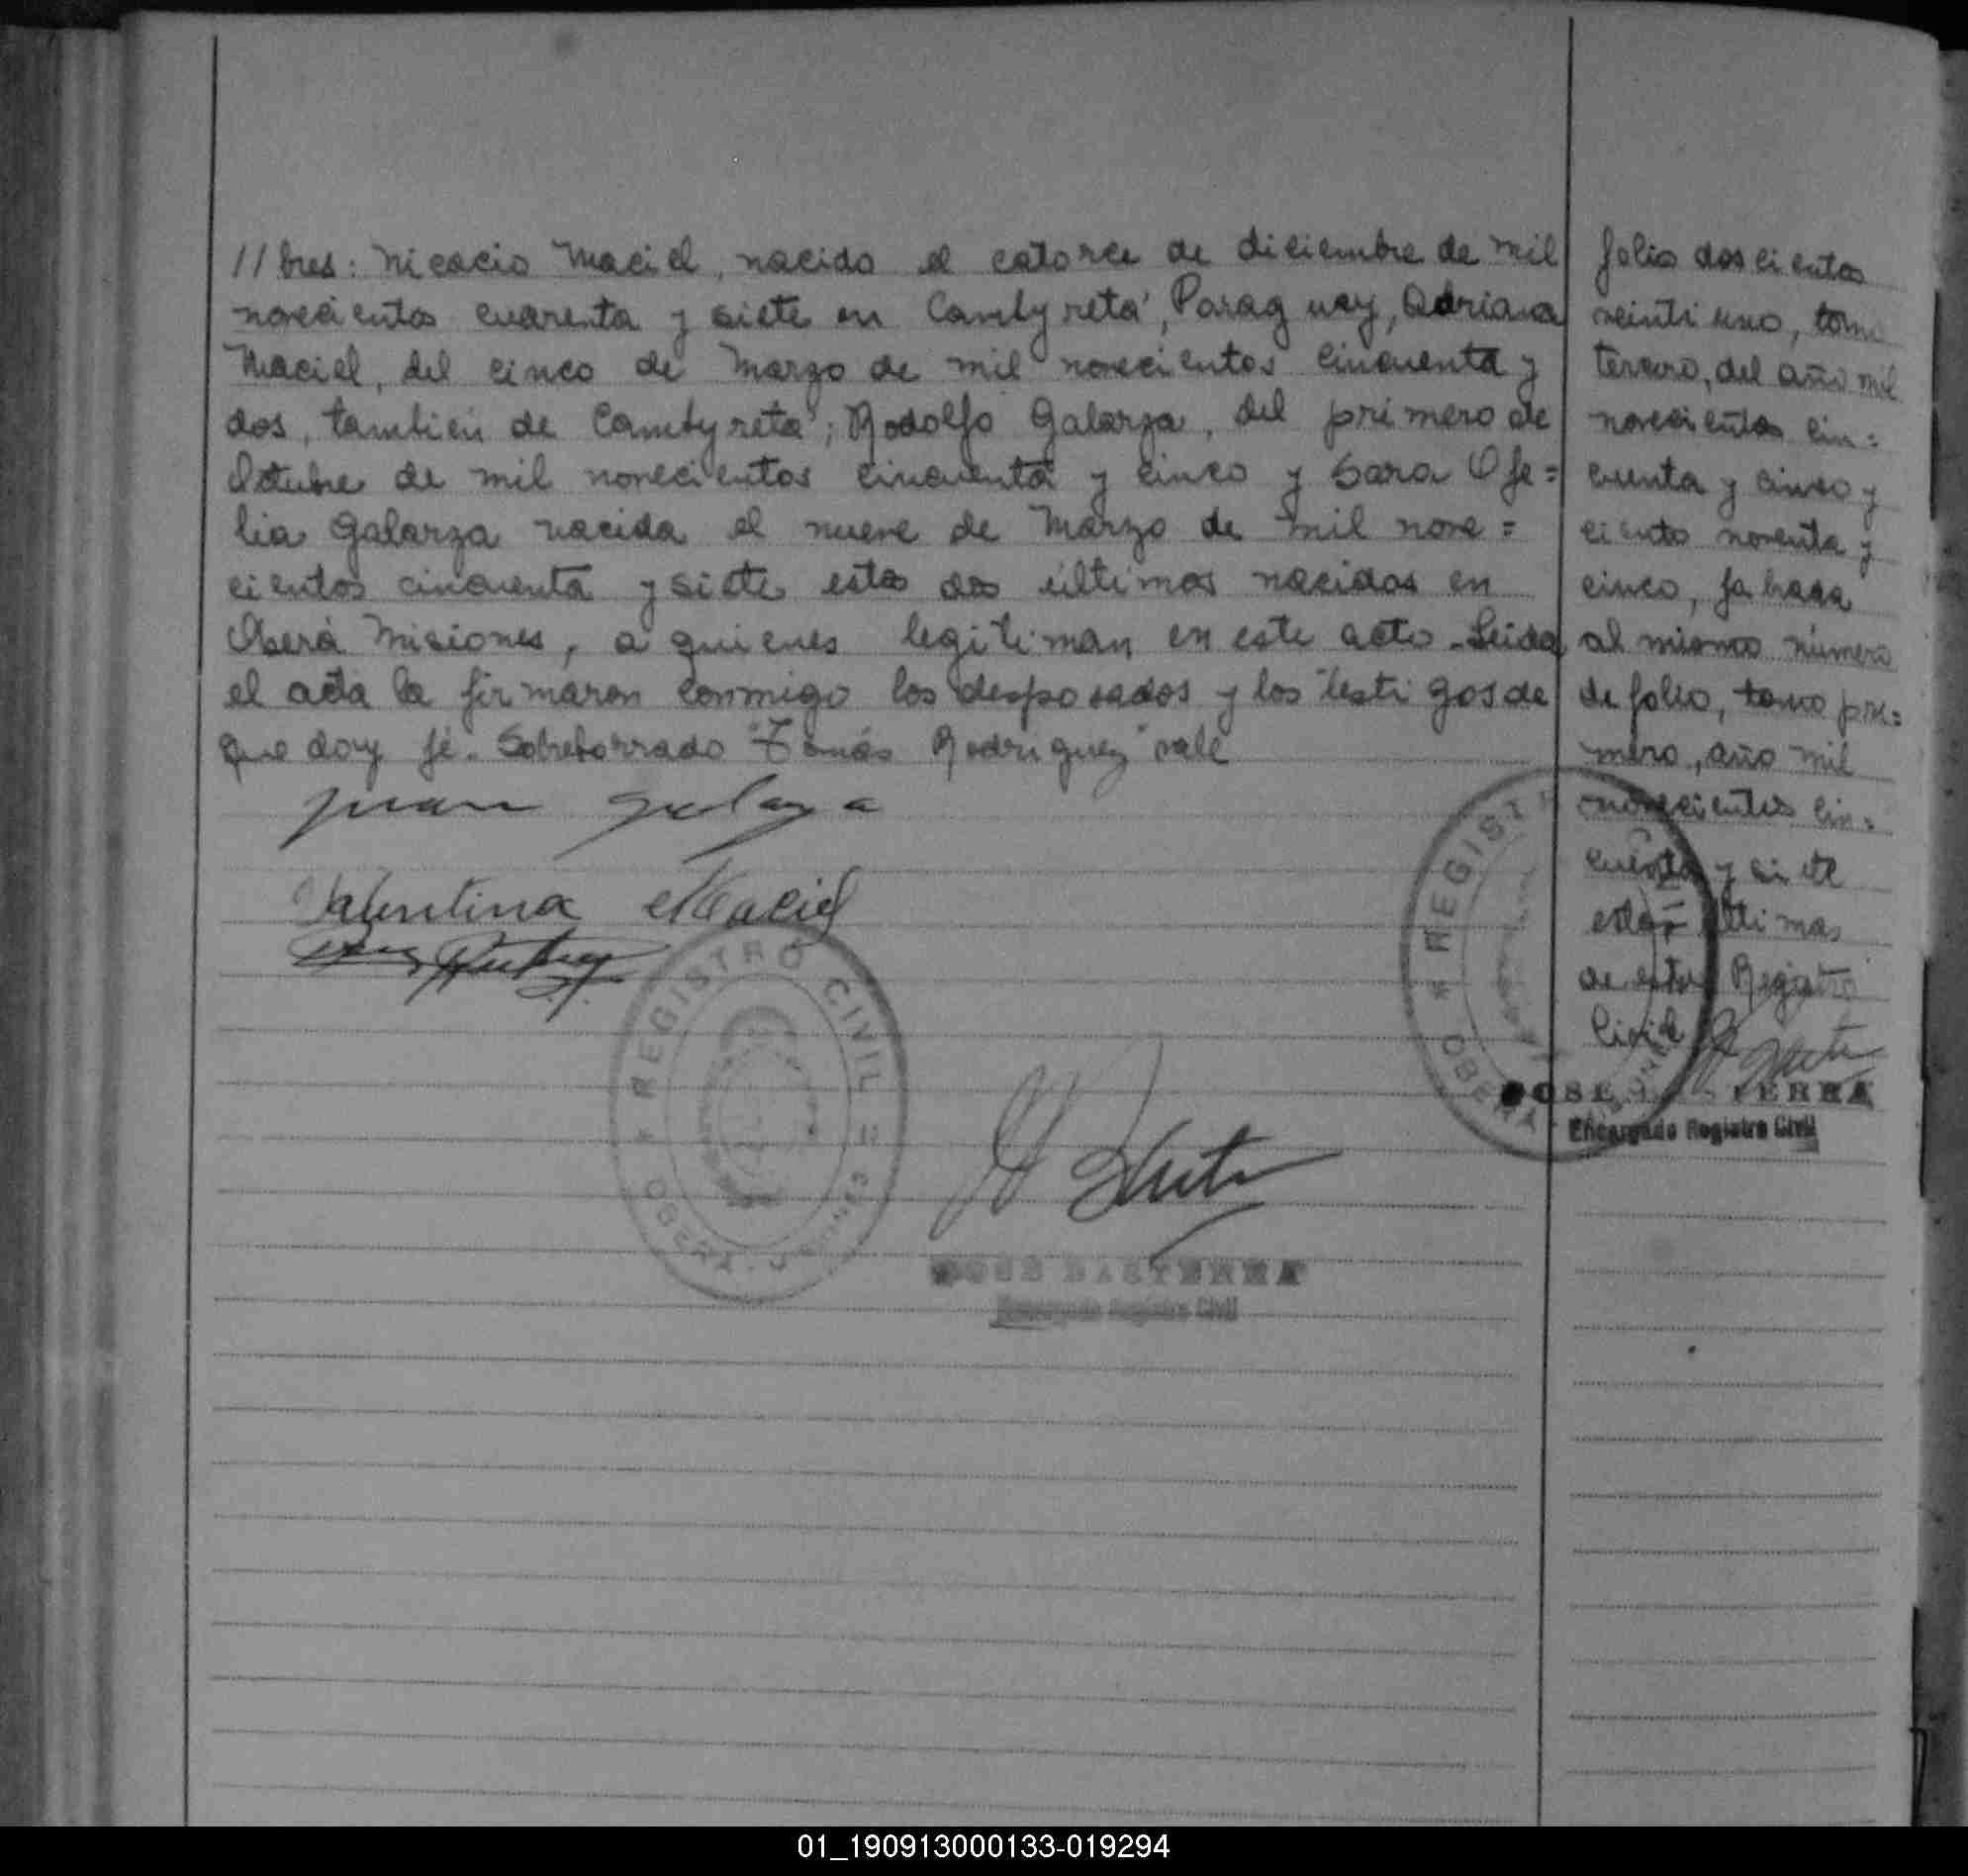 //bres: Nicacio Maciel, nacido el catorce de diciembre de mil
novecientos cuarenta y siete en Cambyretá, Paraguay, Adriana
Maciel, del cinco de Marzo de mil novecientos cincuenta y
dos, también de Cambyretá; Rodolfo Galarza, del primero de
Octubre de mil novecientos cincuenta y cinco y Sara Ofe=
lia Galarza nacida el nueve de Marzo de mil nove=
cientos cincuenta y siete estos dos últimos nacidos en
Oberá Misiones, a quienes legitiman en este acto - Leida
el acta la firmaron conmigo los desposados y los testigos de
que doy fé. Sobreborrado "Tomás Rodriguez" vale
Juan Galarza
Valentina Maciel
REGISTRO CIVIL
OBERA
JOSE BASTERRA
Encargado Registro Civil
folio doscientos
veintiuno, tomo
tercero, del año mil
novecientos cin=
cuenta y cinco y
ciento noventa y
cinco,
al mismo número
de folio, tomo pri=
mero, año mil
novecientos cin=
cuenta y siete
estas últimas
de este Registro
Civil
REGISTRO
OBERA
JOSE BASTERRA
Encargado Registro Civil
01_190913000133-019294